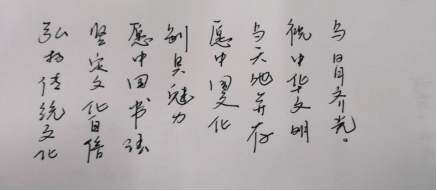 弘扬传统文化
坚定文化自信
愿中国书法
别具魅力
愿中国文化
与天地并存
祝中华文明
与日月齐光。